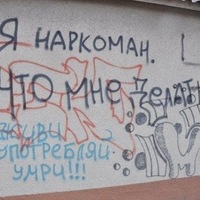 Я НАРКОМАН.
ЧТО МНЕ ДЕЛАТЬ
ЖИВИ
УПОТРЕБЛЯЙ
УМРИ!!!